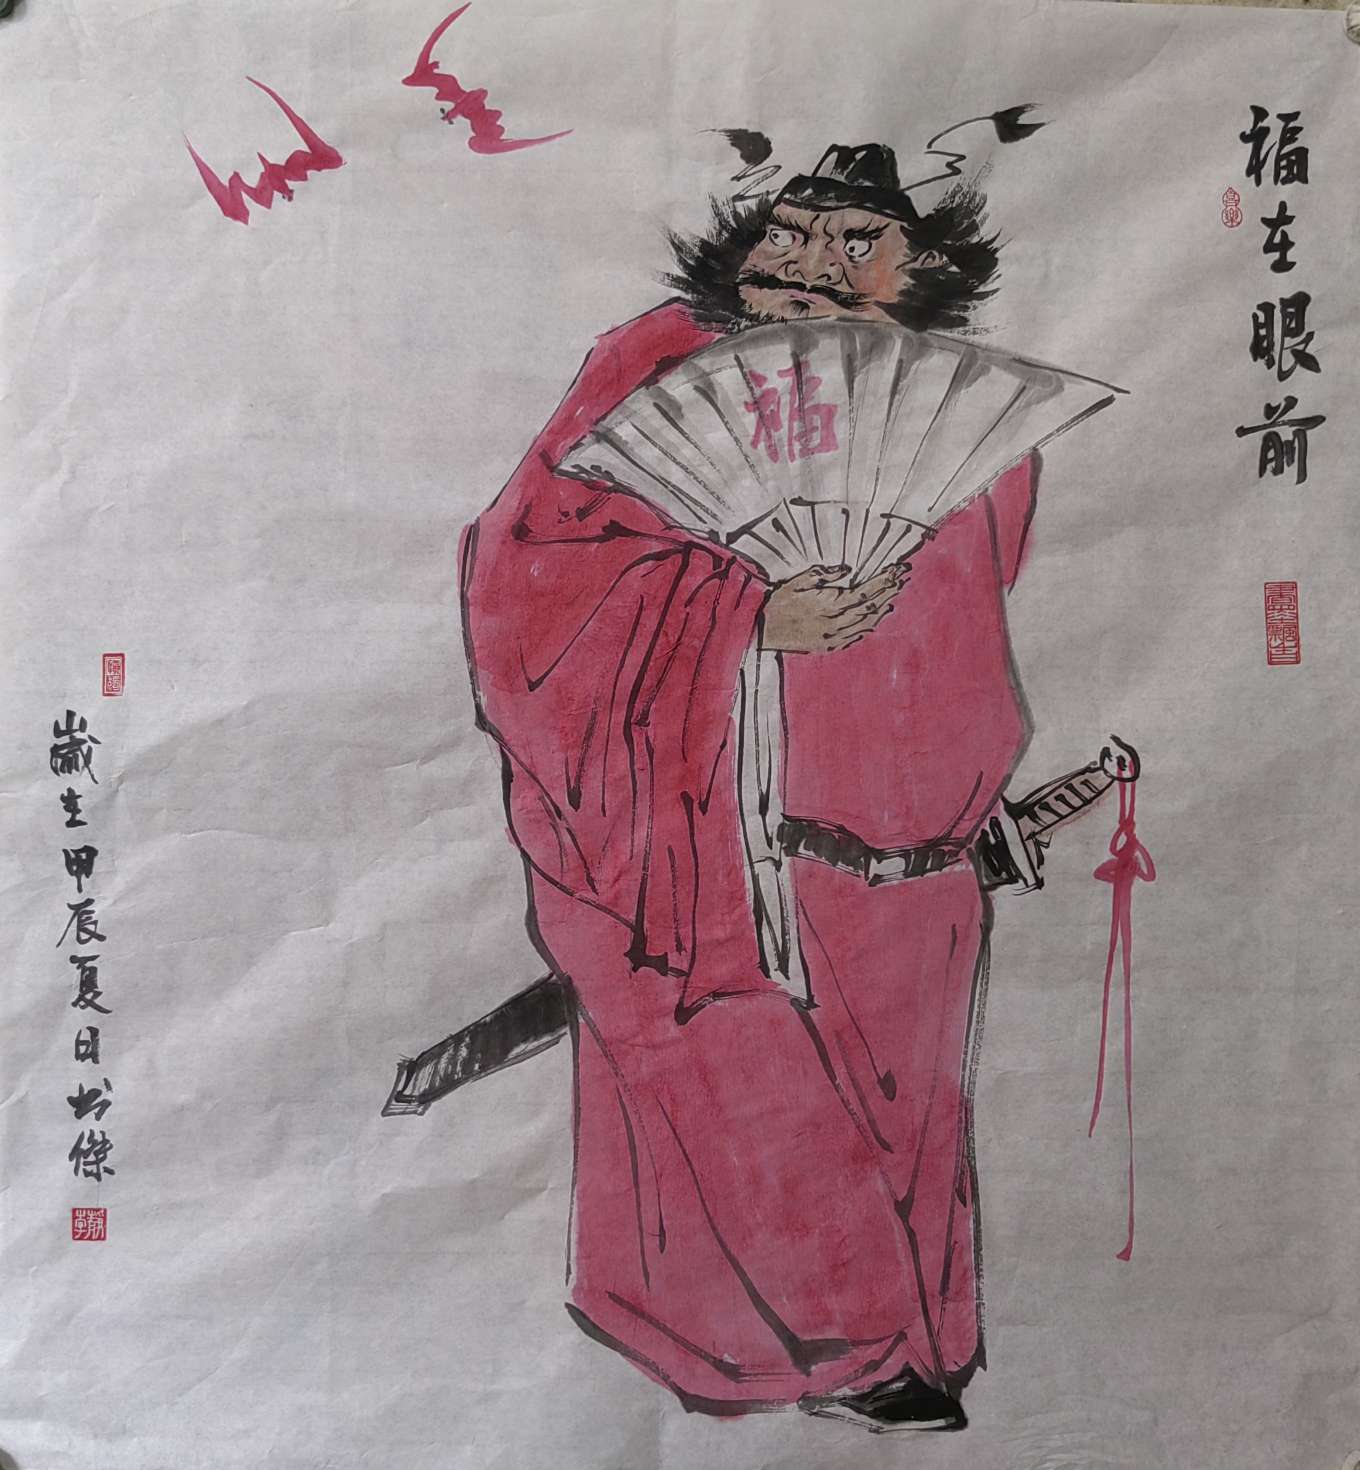 福在眼前
福
歲在甲辰夏日书傑